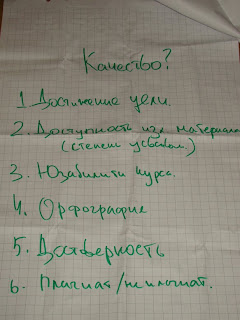 Качество?
1. Достижение цели.
2. Доступность изл. материала
(степень усвоен.)
3. Юзабилити курса.
4. Орфография
5. Достверность
6. Плагиат/не плагиат.